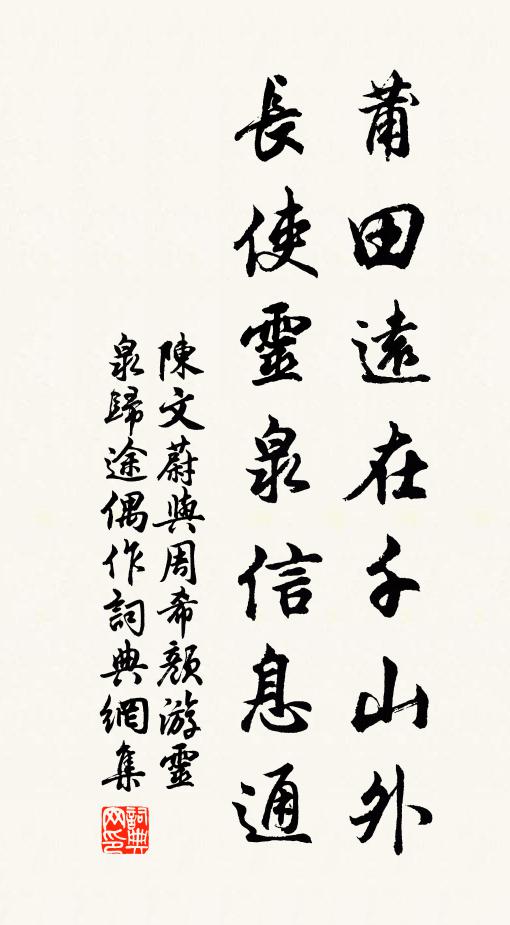 莆田遠在千山外
長使靈泉信息通
陳文蔚與周希顏游靈
泉歸途偶作詞典網集
詞典
网印